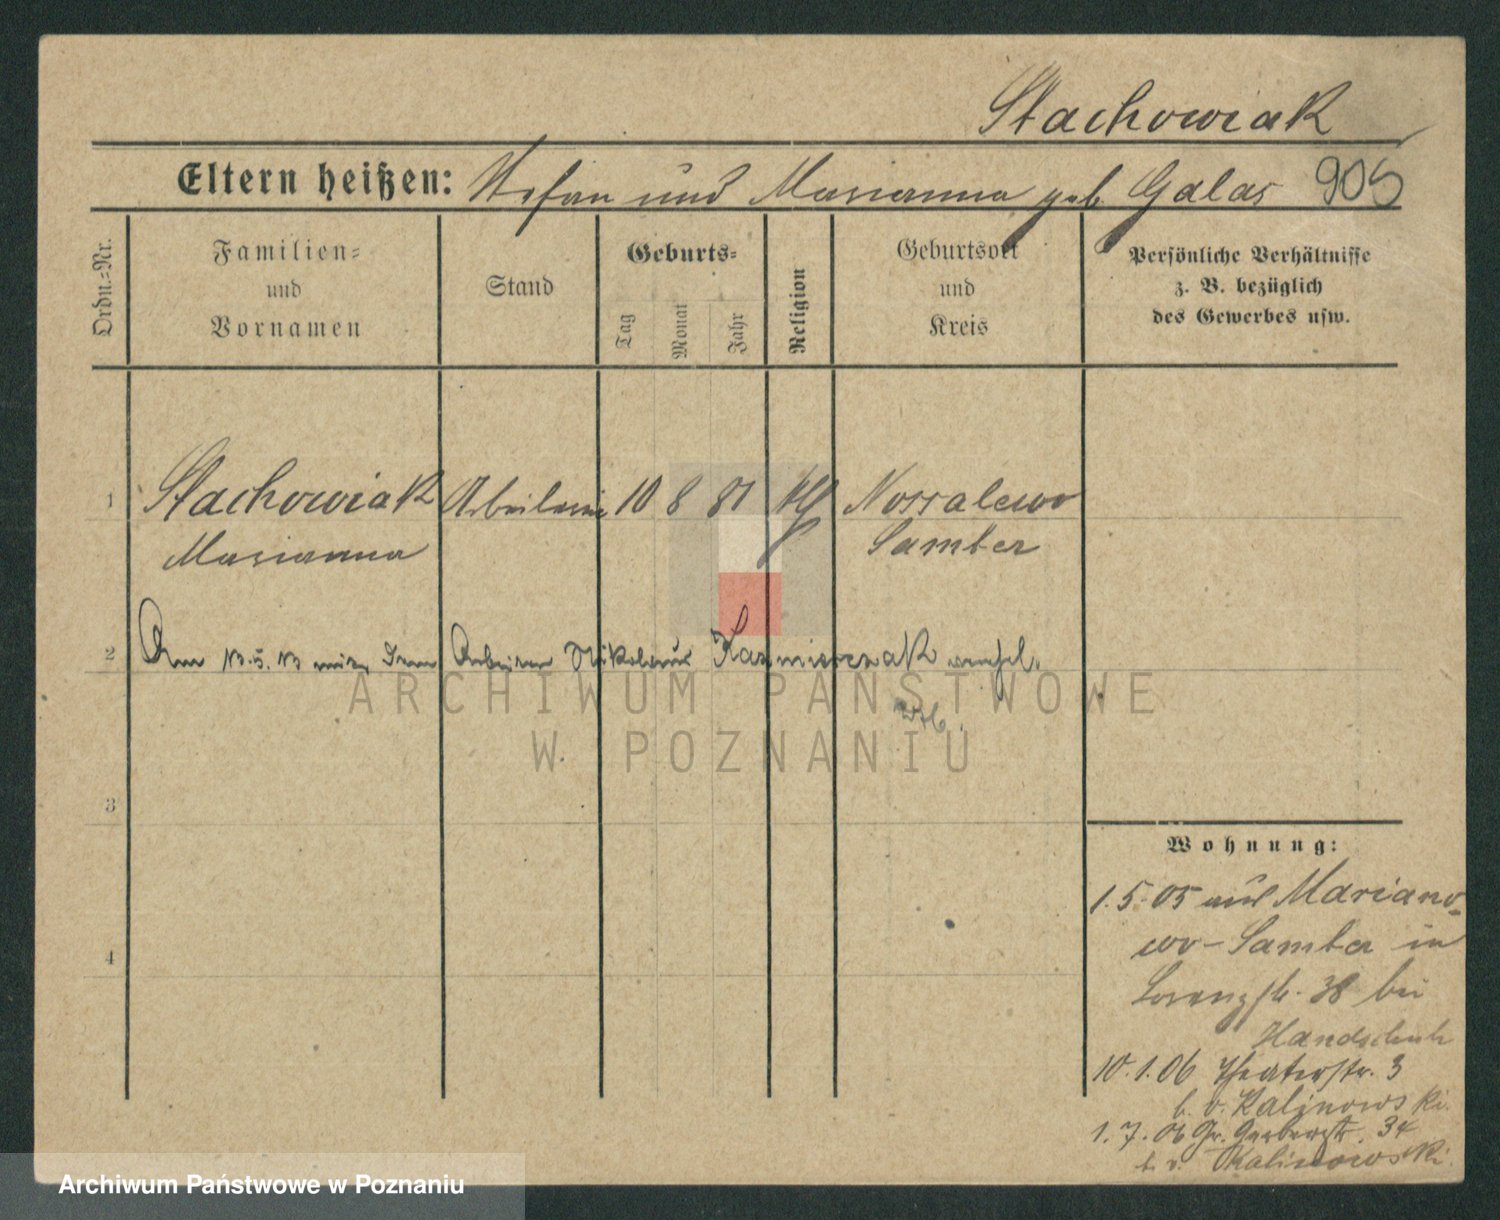 Stachowiak
Eltern heißen: Stefan und Marianna geb. Galas 905
Ordn.=Nr.
Familien=
und
Vornamen
Stand
Geburts=
Tag
Monat
Jahr
Religion
Geburtsort
und
Kreis
Persönliche Verhältnisse
z. B. bezüglich
des Gewerbes usw.
1 Stachowiak Arbeiterin 10 8 81 kg Nossalewo
Marianna Samter
2 Am 13.5.13 dem Arbeiter Nikolaus Kazmierczak verehel.
ARCHIWUM PAŃSTWOWE
W POZNANIU
3
4
Wohnung:
1.5.05 aus Mariano-
wo-Samter in
Lorenzstr. 38 bei
Handschuh
10.1.06 Theaterstr. 3
b. v. Kalinowski.
1.7.06 Gr. Gerberstr. 34
b. v. Kalinowski.
Archiwum Państwowe w Poznaniu